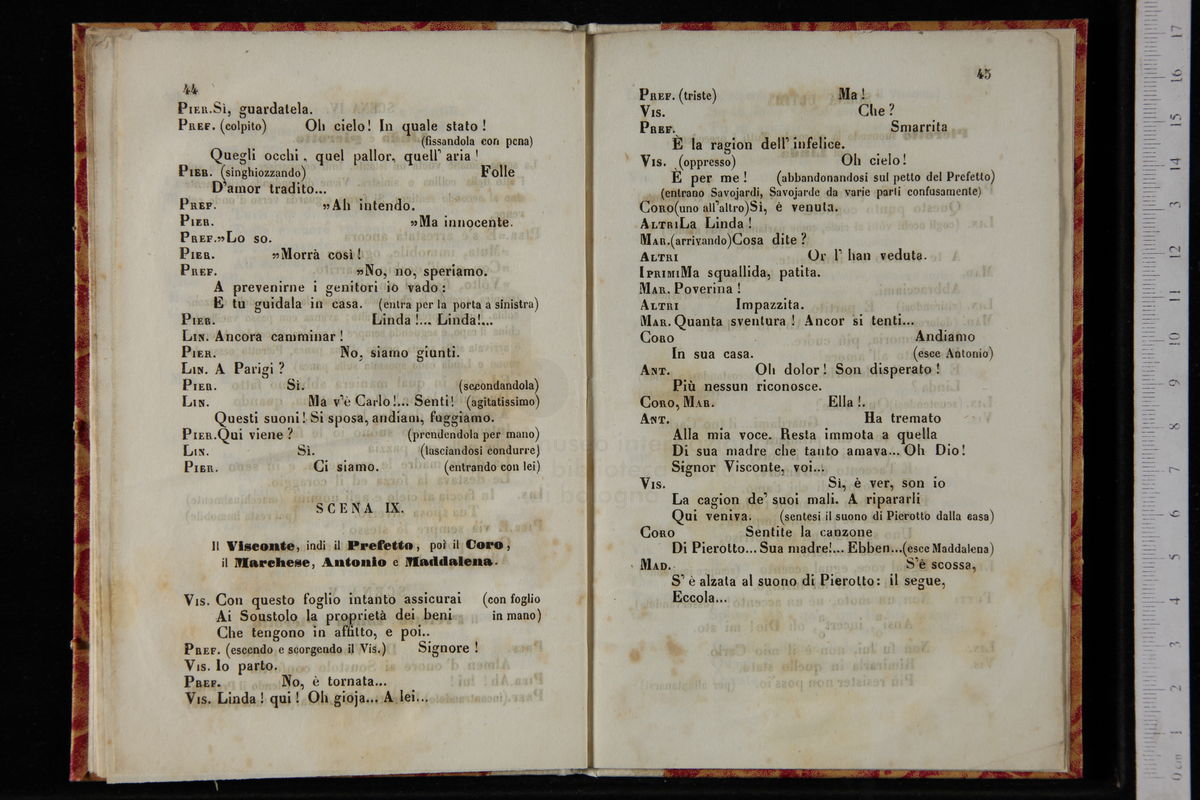 44
PIER. Sì, guardatela.
PREF. (colpito) Oh cielo! In quale stato!
(fissandola con pena)
Quegli occhi, quel pallor, quell' aria!
PIER. (singhiozzando) Folle
D'amor tradito...
PREF. »Ah intendo.
PIER. »Ma innocente.
PREF. »Lo so.
PIER. »Morrà così!
PREF. »No, no, speriamo.
A prevenirne i genitori io vado:
E tu guidala in casa. (entra per la porta a sinistra)
PIER. Linda!... Linda!...
LIN. Ancora camminar!
PIER. No, siamo giunti.
LIN. A Parigi?
PIER. Sì. (secondandola)
LIN. Ma v'è Carlo!... Senti! (agitatissimo)
Questi suoni! Si sposa, andiam, fuggiamo.
PIER. Qui viene? (prendendola per mano)
LIN. Sì. (lasciandosi condurre)
PIER. Ci siamo. (entrando con lei)
SCENA IX.
Il Visconte, indi il Prefetto, poi il Coro,
il Marchese, Antonio e Maddalena.
VIS. Con questo foglio intanto assicurai (con foglio
Ai Soustolo la proprietà dei beni in mano)
Che tengono in affitto, e poi..
PREF. (escendo e scorgendo il Vis.) Signore!
VIS. Io parto.
PREF. No, è tornata...
VIS. Linda! qui! Oh gioja... A lei...
45
PREF. (triste) Ma!
VIS. Che?
PREF. Smarrita
È la ragion dell' infelice.
VIS. (oppresso) Oh cielo!
E per me! (abbandonandosi sul petto del Prefetto)
(entrano Savojardi, Savojarde da varie parti confusamente)
CORO (uno all'altro) Sì, è venuta.
ALTRI La Linda!
MAR. (arrivando) Cosa dite?
ALTRI Or l' han veduta.
I PRIMI Ma squallida, patita.
MAR. Poverina!
ALTRI Impazzita.
MAR. Quanta sventura! Ancor si tenti...
CORO Andiamo
In sua casa. (esce Antonio)
ANT. Oh dolor! Son disperato!
Più nessun riconosce.
CORO, MAR. Ella!.
ANT. Ha tremato
Alla mia voce. Resta immota a quella
Di sua madre che tanto amava... Oh Dio!
Signor Visconte, voi...
VIS. Sì, è ver, son io
La cagion de' suoi mali. A ripararli
Qui veniva. (sentesi il suono di Pierotto dalla casa)
CORO Sentite la canzone
Di Pierotto... Sua madre!... Ebben...(esce Maddalena)
MAD. S'è scossa,
S' è alzata al suono di Pierotto: il segue,
Eccola...